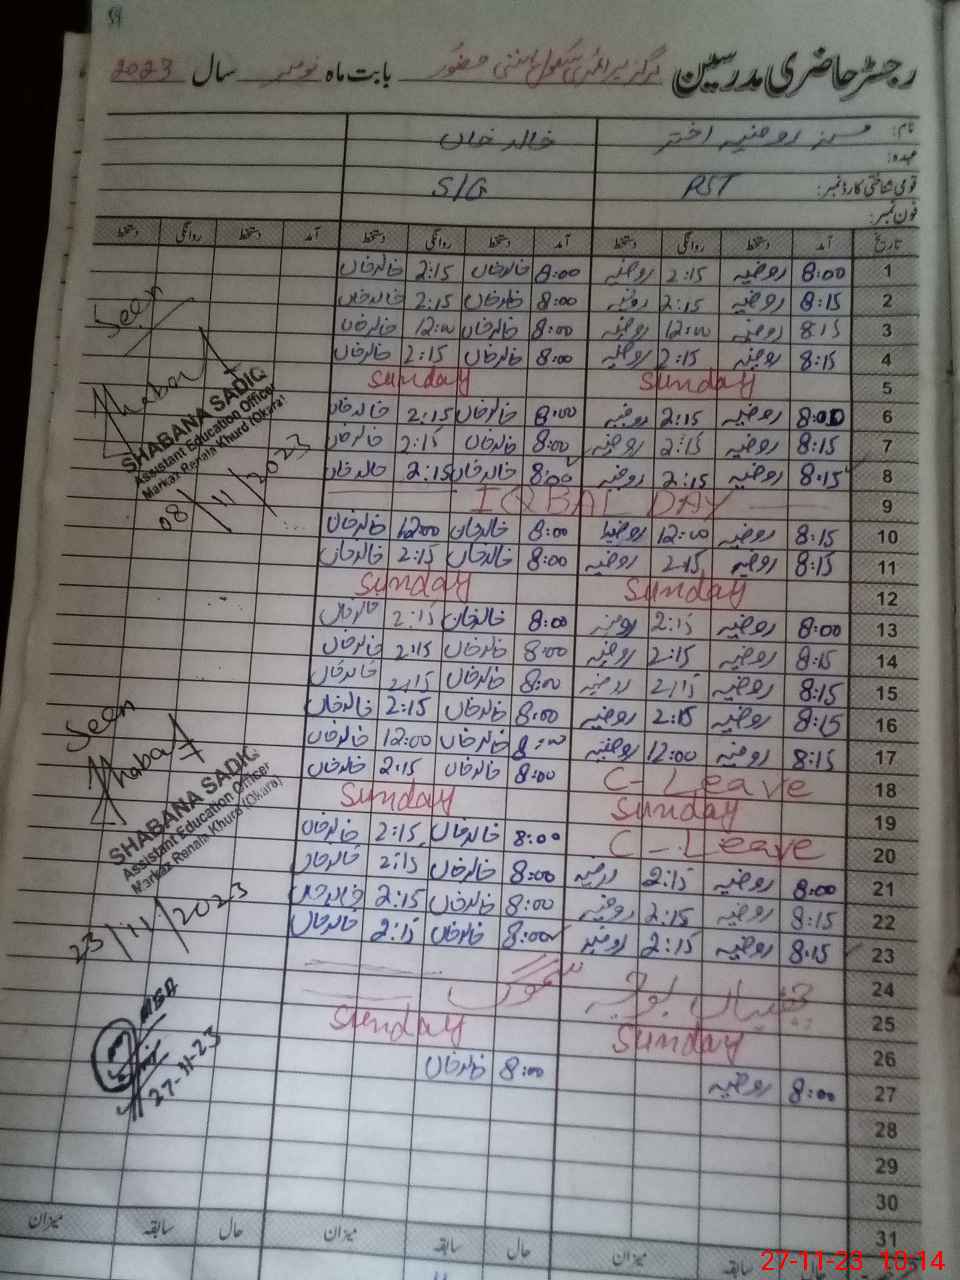 59
رجسٹر حاضری مدرسین بابت ماہ نومبر سال 2023
نام: مسز روضیہ اختر خالد خاں
عہدہ:
قومی شناختی کارڈ نمبر: PST S/G
فون نمبر:
تاریخ آمد دستخط روانگی دستخط آمد دستخط روانگی دستخط آمد دستخط روانگی دستخط
1 8:00 روضیہ 2:15 روضیہ 8:00 خالدخاں 2:15 خالدخاں
2 8:15 روضیہ 2:15 روضیہ 8:00 خالدخاں 2:15 خالدخاں
3 8:15 روضیہ 12:00 روضیہ 8:00 خالدخاں 12:00 خالدخاں
4 8:15 روضیہ 2:15 روضیہ 8:00 خالدخاں 2:15 خالدخاں
5 Sunday Sunday
6 8:00 روضیہ 2:15 روضیہ 8:00 خالدخاں 2:15 خالدخاں
7 8:15 روضیہ 2:15 روضیہ 8:00 خالدخاں 2:15 خالدخاں
8 8:15 روضیہ 2:15 روضیہ 8:00 خالدخاں 2:15 خالدخاں
9 IQBAL DAY
10 8:15 روضیہ 12:00 روضیہ 8:00 خالدخاں 12:00 خالدخاں
11 8:15 روضیہ 2:15 روضیہ 8:00 خالدخاں 2:15 خالدخاں
12 Sunday Sunday
13 8:00 روضیہ 2:15 روضیہ 8:00 خالدخاں 2:15 خالدخاں
14 8:15 روضیہ 2:15 روضیہ 8:00 خالدخاں 2:15 خالدخاں
15 8:15 روضیہ 2:15 روضیہ 8:00 خالدخاں 2:15 خالدخاں
16 8:15 روضیہ 2:15 روضیہ 8:00 خالدخاں 2:15 خالدخاں
17 8:15 روضیہ 12:00 روضیہ 8:00 خالدخاں 12:00 خالدخاں
18 C-Leave 8:00 خالدخاں 2:15 خالدخاں
19 Sunday Sunday
20 C-Leave 8:00 خالدخاں 2:15 خالدخاں
21 8:00 روضیہ 2:15 روضیہ 8:00 خالدخاں 2:15 خالدخاں
22 8:15 روضیہ 2:15 روضیہ 8:00 خالدخاں 2:15 خالدخاں
23 8:15 روضیہ 2:15 روضیہ 8:00 خالدخاں 2:15 خالدخاں
24
25
26 Sunday Sunday
27 8:00 روضیہ 8:00 خالدخاں
28
29
30
31
حال سابقہ میزان حال سابقہ میزان حال سابقہ میزان
Seen
SHABANA SADIQ
Assistant Education Officer
Markaz Renala Khurd (Okara)
08/11/2023
Seen
SHABANA SADIQ
Assistant Education Officer
Markaz Renala Khurd (Okara)
23/11/2023
MEA
27-11-23
27-11-23 10:14